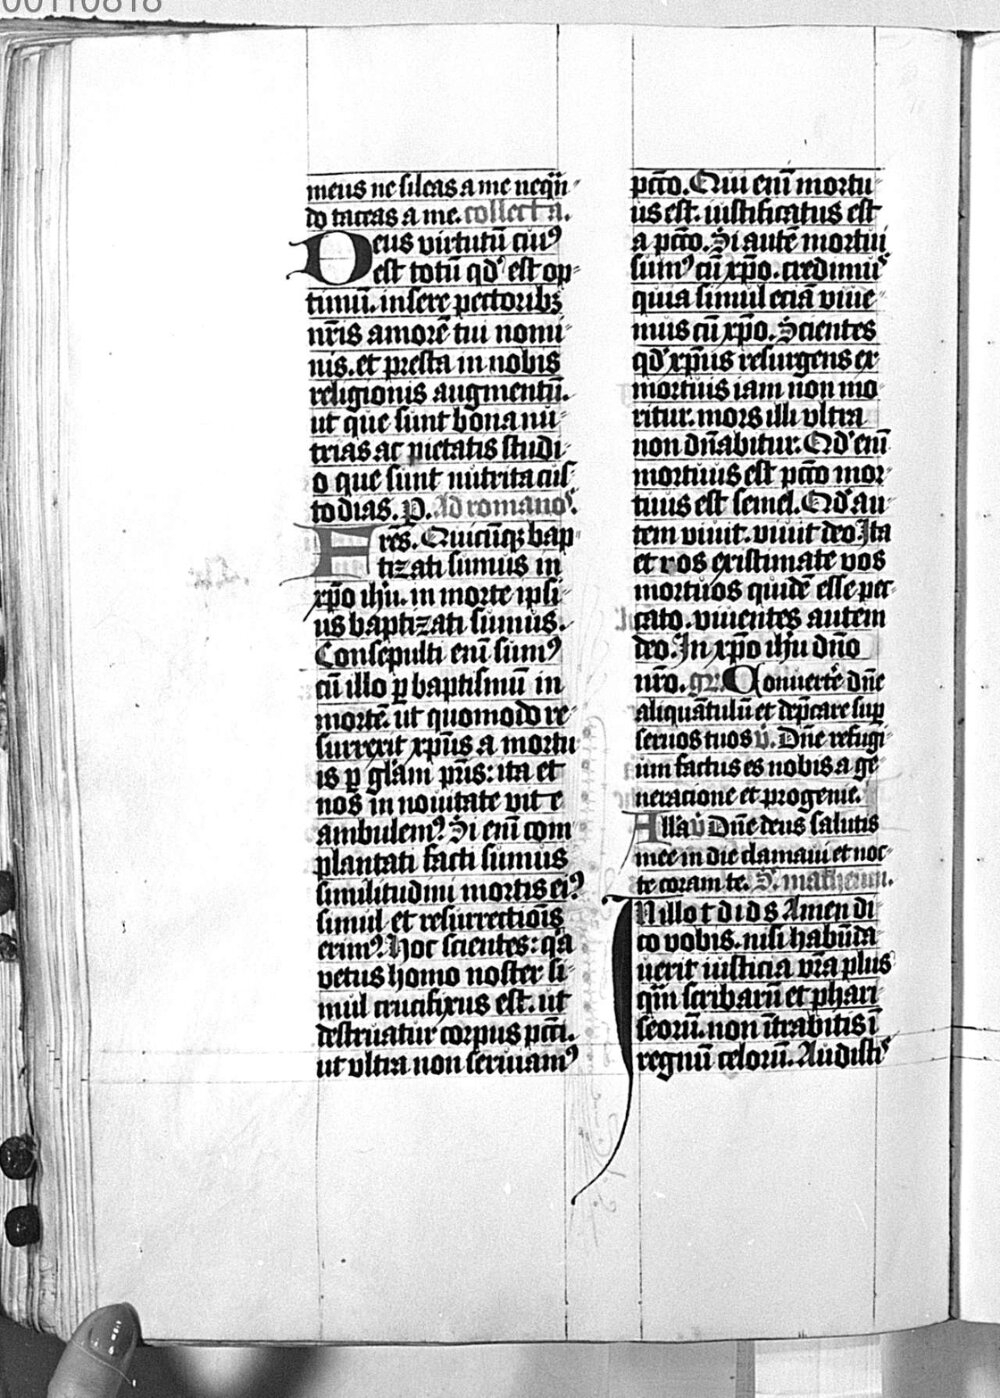 00110818
meus ne sileas a me neqn̄
do taceas a me. collecta.
Deus virtutū cui9
est totū qd' est op
timū. insere pectoribȝ
nr̄is amorē tui nomi
nis. et presta in nobis
religionis augmentū.
ut que sunt bona nu
trias ac pietatis studi
o que sunt nutrita cus
todias. P. Ad romanos.
Fres̄. Quicūqȝ bap
tizati sumus in
xp̄o ih̄u. in morte ipsi
us baptizati sumus.
Consepulti enī sum9
cū illo ꝑ baptismū in
mortē. ut quomodo re
surrexit xp̄us a mortu
is ꝑ gl̄am pr̄is: ita et
nos in nouitate vite
ambulem9. Si enī com
plantati facti sumus
similitudini mortis ei9
simul et resurrectiōis
erim9. Hoc scientes: qa
vetus homo noster si
mul crucifixus est. ut
destruatur corpus pcc̄i.
ut vltra non seruiam9
pcc̄o. Qui enī mortu
us est. iustificatus est
a pcc̄o. Si autē mortui
sum9 cū xp̄o. credimus
quia simul eciā viue
mus cū xp̄o. Scientes
qd' xp̄us resurgens ex
mortuis iam non mo
ritur. mors illi vltra
non dn̄abitur. Qd' enī
mortuus est pcc̄o mor
tuus est semel. Qd' au
tem viuit. viuit deo. Ita
et vos existimate vos
mortuos quidē esse pec
cato. viuentes autem
deo. In xp̄o ih̄u dn̄o
nr̄o. gr̄. Conuertē dn̄e
aliquātulū et dep̄care suꝑ
seruos tuos v̄. Dn̄e refugi
um factus es nobis a ge
neracione et progenie.
Alla v̄ Dn̄e deus salutis
mee in die clamaui et noc
te coram te. S. matheum.
In illo t d i d s Amen di
co vobis. nisi habūda
uerit iusticia vr̄a plus
qm̄ scribarū et phari
seorū. non ītrabitis ī
regnū celorū. Audistis